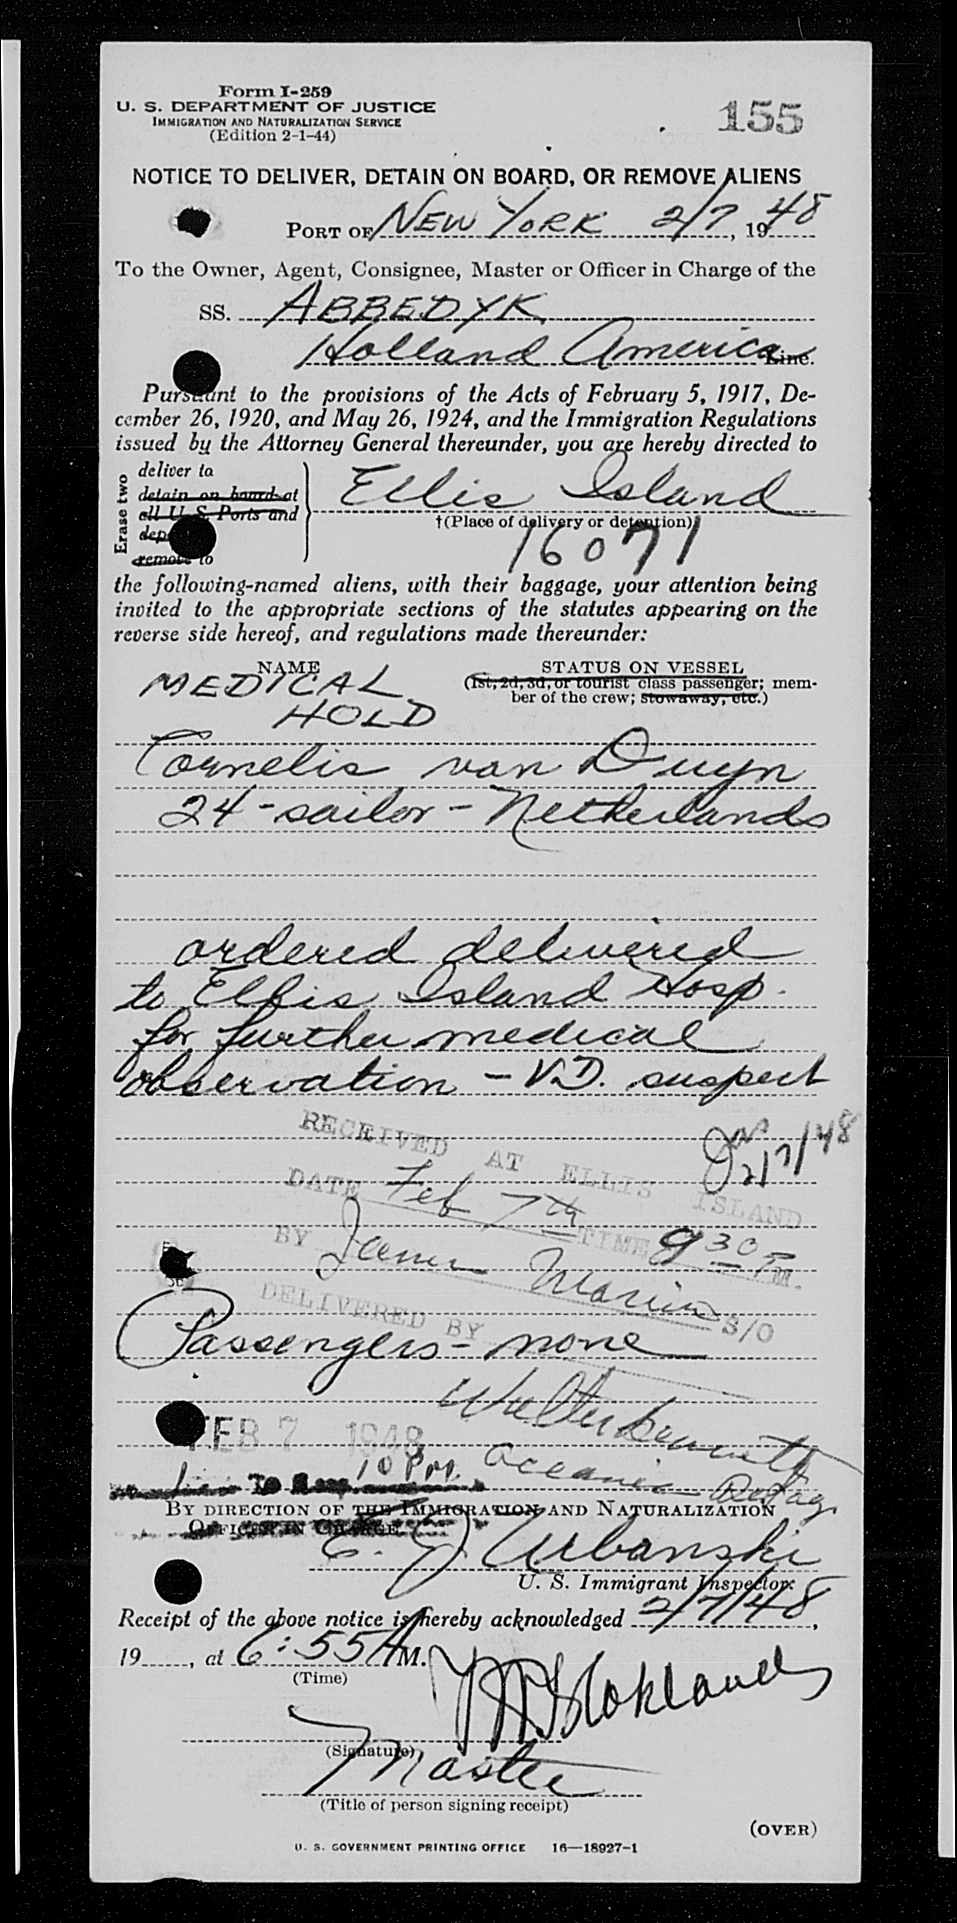 Form I-259
U. S. DEPARTMENT OF JUSTICE
IMMIGRATION AND NATURALIZATION SERVICE
(Edition 2-1-44)
155
NOTICE TO DELIVER, DETAIN ON BOARD, OR REMOVE ALIENS
PORT OF NEW YORK 2/7, 1948
To the Owner, Agent, Consignee, Master or Officer in Charge of the
SS. ABBEDYK
Holland America Line.
Pursuant to the provisions of the Acts of February 5, 1917, De-
cember 26, 1920, and May 26, 1924, and the Immigration Regulations
issued by the Attorney General thereunder, you are hereby directed to
Erase two
deliver to
detain on board at
all U. S. Ports and
remove to
Ellis Island
†(Place of delivery or detention)
16071
the following-named aliens, with their baggage, your attention being
invited to the appropriate sections of the statutes appearing on the
reverse side hereof, and regulations made thereunder:
NAME
STATUS ON VESSEL
(1st, 2d, 3d, or tourist class passenger; mem-
ber of the crew; stowaway, etc.)
MEDICAL
HOLD
Cornelis van Duyn
24 - sailor - Netherlands
ordered delivered
to Ellis Island Hosp.
for further medical
observation - V.D. suspect
2/7/48
RECEIVED AT ELLIS ISLAND
DATE Feb 7th TIME 9 30 P.M.
BY James Marion S/O
DELIVERED BY
Passengers - none
Walter
Oceanic
FEB 7 1948
10 PM.
BY DIRECTION OF THE IMMIGRATION AND NATURALIZATION
OFFICER IN CHARGE
E. J. Urbanski
U. S. Immigrant Inspector.
Receipt of the above notice is hereby acknowledged 2/7/48,
19, at 6:55 A M.
(Time)
(Signature)
Master
(Title of person signing receipt)
(OVER)
U. S. GOVERNMENT PRINTING OFFICE 16—18927-1